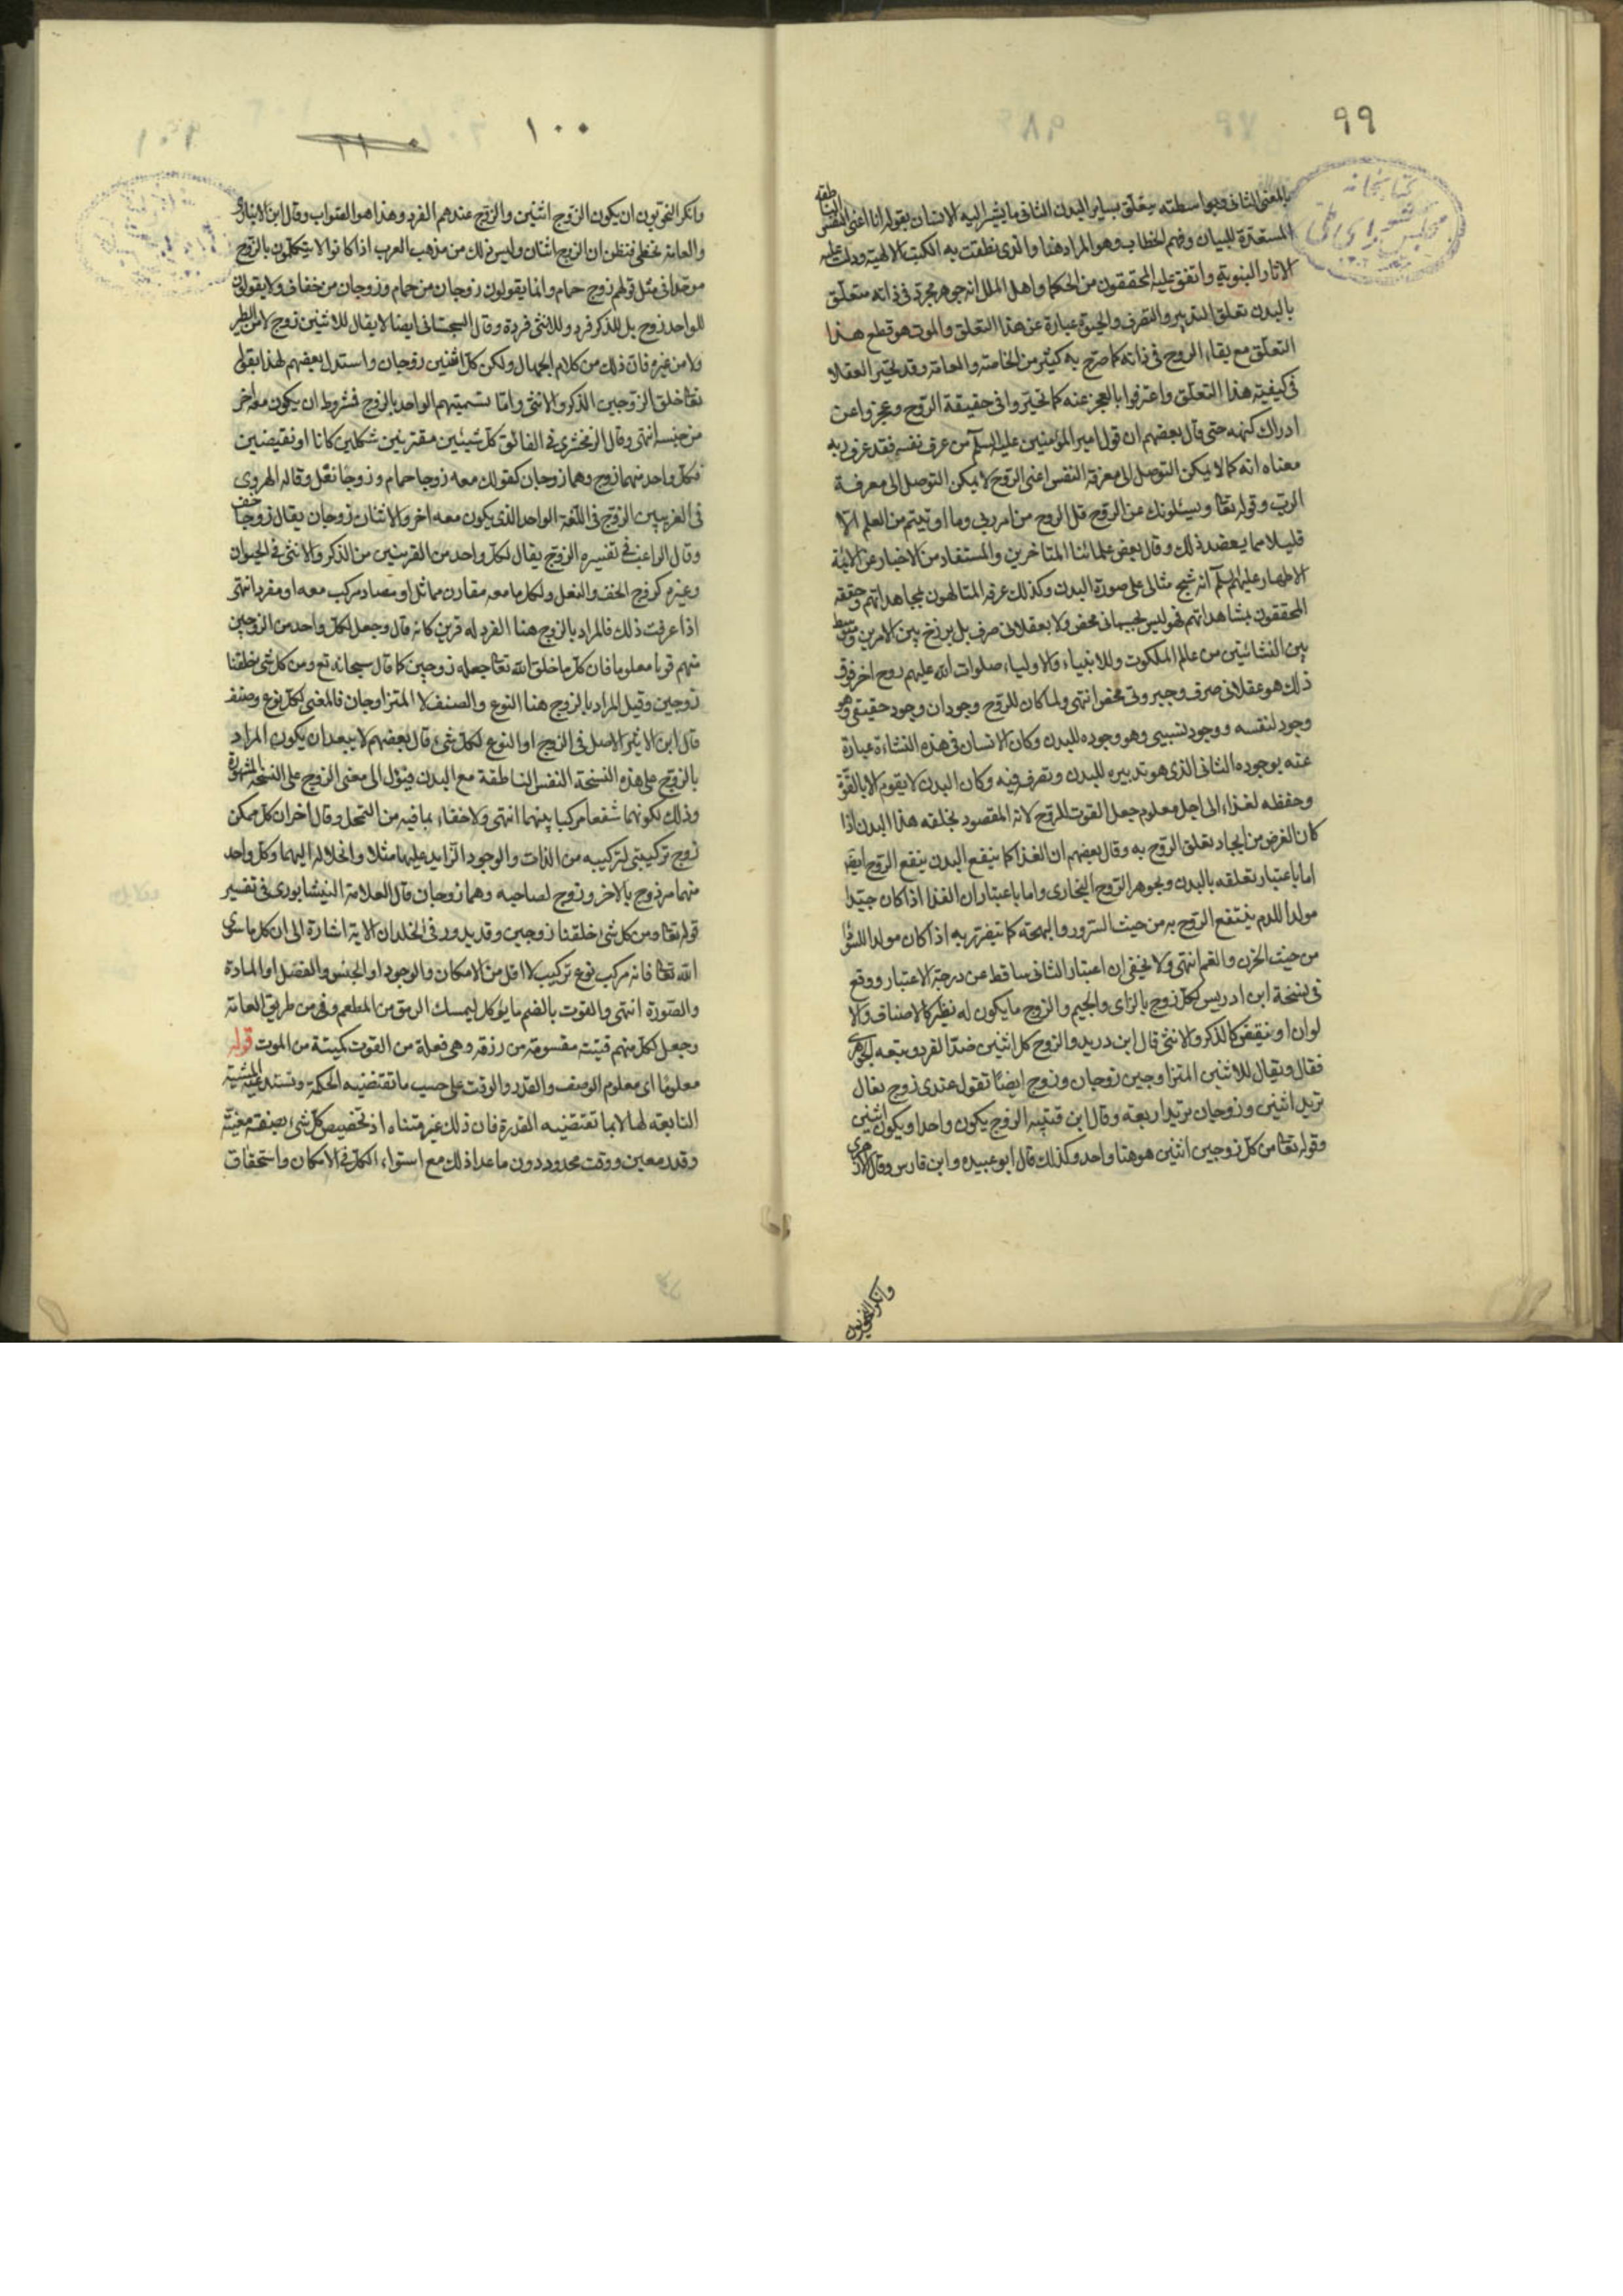 ٩٩
بالمعنى الثانى وبواسطته يتعلق بساير البدن الثانى ما يشير اليه الانسان بقوله انا اعنى النفس الناطقة
المستعدة للبيان وفهم الخطاب وهو المراد هنا والذى نطقت به الكتب الالهية ودلت عليه
الاثار النبوية واتفق عليه المحققون من الحكما واهل الملل انه جوهر مجرد فى ذاته متعلق
بالبدن تعلق التدبير والتصرف والحيوة عبارة عن هذا التعلق والموت هو قطع هذا
التعلق مع بقاء الروح فى ذاته كما صرح به كثير من الخاصة والعامة وقد تحير العقلا
فى كيفية هذا التعلق واعترفوا بالعجز عنه كما تحيروا فى حقيقة الروح وعجزوا عن
ادراك كنهه حتى قال بعضهم ان قول امير المؤمنين عليه السلم من عرف نفسه فقد عرف ربه
معناه انه كما لا يمكن التوصل الى معرفة النفس اعنى الروح لا يمكن التوصل الى معرفة
الرب وقوله تعا ويسئلونك عن الروح قل الروح من امر ربى وما اوتيتم من العلم الا
قليلا مما يعضد ذلك وقال بعض علمائنا المتاخرين والمستفاد من الاخبار عن الائمة
الاطهار عليهم السلم انه شبح مثالى على صورة البدن وكذلك عرفه المتالهون بمجاهداتهم وحققه
المحققون بمشاهداتهم فهو ليس بجسمانى محض ولا بعقلانى صرف بل برزخ بين الامرين ومتوسط
بين النشاتين من عالم الملكوت وللانبياء والاولياء صلوات الله عليهم روح اخر فوق
ذلك هو عقلانى صرف وجبروتى محض انتهى ولما كان للروح وجودان وجود حقيقى وهو
وجود لنفسه ووجود نسبى وهو وجوده للبدن وكان الانسان فى هذه النشاءة عبارة
عنه بوجوده الثانى الذى هو تدبيره للبدن وتصرفه فيه وكان البدن لا يقوم الا بالقوة
وحفظه لغذاء الى اجل معلوم جعل القوت للروح لانه المقصود بخلقه هذا البدن اذا
كان الغرض من ايجاد تعلق الروح به وقال بعضهم ان الغذا كما ينفع البدن ينفع الروح ايضا
اما باعتبار تعلقه بالبدن وبجوهر الروح البخارى واما باعتبار ان الغذا اذا كان جيدا
مولدا للدم ينتفع الروح به من حيث السرور والبهجة كما يتضرر به اذا كان مولدا للسودا
من حيث الحزن والغم انتهى ولا يخفى ان اعتبار الثانى ساقط عن درجة الاعتبار ووقع
فى نسخة ابن ادريس لكل زوج بالزاى والجيم والزوج ما يكون له نظير كالاصناف والا
لوان او نقيض كالذكر والانثى قال ابن دريد والزوج كل اثنين ضد الفرد وتبعه الجوهرى
فقال ويقال للاثنين المتزاوجين زوجان وزوج ايضا تقول عندى زوج نعال
تريد اثنين وزوجان تريد اربعة وقال ابن قتيبه الزوج يكون واحدا ويكون اثنين
وقوله تعا من كل زوجين اثنين هو هنا واحد وكذلك قال ابو عبيده وابن فارس وقال الازهرى
وانكر النحويون
١٠٠
وانكر النحويون ان يكون الزوج اثنين والزوج عندهم الفرد وهذا هو الصواب وقال ابن الانبارى
والعامة تخطى فتظن ان الزوج اثنان وليس ذلك من مذهب العرب اذا كانوا لا يتكلمون بالزوج
موحدا فى مثل قولهم زوج حمام وانما يقولون زوجان من حمام وزوجان من خفاف ولا يقولون
للواحد زوج بل للذكر فرد وللانثى فردة وقال السجستانى ايضا لا يقال للاثنين زوج لا من الطير
ولا من غيره فان ذلك من كلام الجهال ولكن كل اثنين زوجان واستدل بعضهم لهذا بقوله
تعا خلق الزوجين الذكر والانثى واما تسميتهم الواحد بالزوج فشروط ان يكون معه اخر
من جنسه انتهى وقال الزمخشرى فى الفائق كل شيئين مقترنين شكلين كانا او نقيضين
فكل واحد منهما زوج وهما زوجان كقولك معه زوجا حمام وزوجا نعل وقاله الهروى
فى الغريبين الزوج فى اللغة الواحد الذى يكون معه اخر والاثنان زوجان يقال زوجا خف
وقال الراغب فى تفسيره الزوج يقال لكل واحد من القرينين من الذكر والانثى فى الحيوان
وغيره كزوج الخف والنعل ولكل ما معه مقارن مماثل او مضاد مركب معه او مفرد انتهى
اذا عرفت ذلك فالمراد بالزوج هنا الفرد له قرين كانه قال وجعل لكل واحد من الزوجين
منهم قوتا معلوما فان كل ما خلق الله تعا جعله زوجين كما قال سبحانه تع ومن كل شى خلقنا
زوجين وقيل المراد بالزوج هنا النوع والصنف لا المتزاوجان فالمعنى لكل نوع وصنف
قال ابن الاثير الاصل فى الزوج او النوع لكل شئ قال بعضهم لا يبعد ان يكون المراد
بالزوج على هذه النسخة النفس الناطقة مع البدن فيؤل الى معنى الروح على النسخة المشهورة
وذلك لكونهما شفعا مركبا بينهما انتهى ولا خفاء بما فيه من التمحل وقال اخر ان كل ممكن
زوج تركيبى لتركيبه من الذات والوجود الزايد عليها مثلا وانحلاله اليهما وكل واحد
منهما مزدوج بالاخر وزوج لصاحبه وهما زوجان قال العلامة النيشابورى فى تفسير
قوله تعا ومن كل شئ خلقنا زوجين وقد يدور فى الخلد ان الاية اشارة الى ان كل ما سوى
الله تعا فانه مركب نوع تركيب لا اقل من الامكان والوجود او الجنس والفصل او المادة
والصورة انتهى والقوت بالضم ما يؤكل ليمسك الرمق من المطعم وفى من طريق العامة
وجعل لكل منهم قيتة مقسومة من رزقه وهى فعلة من القوت كميتة من الموت قوله
معلوما اى معلوم الوصف والقدر والوقت على حسب ما تقتضيه الحكمة وتستدعيه المشية
التابعة لها لا بما تقتضيه القدرة فان ذلك غير متناه اذ تخصيص كل شئ بصفة معينة
وقدر معين ووقت محدود دون ما عدا ذلك مع استواء الكل فى الامكان واستحقاق